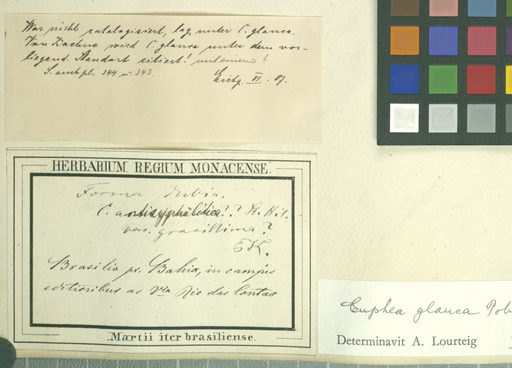 War nicht catalogisiert, lag unter C. glauca.
Von Koehne wird C. glauca unter dem vor-
liegend. Standort citiert!
S. amb pl. 344 u. 343.
VI. 07.
HERBARIUM REGIUM MONACENSE.
Forma dubia.
C. antisyphilitica?? St. Hil.
var. gracillima?
Brasilia pr. Bahia, in campis
editioribus ad Rio das Contas
Martii iter brasiliense.
Cuphea glauca Poh
Determinavit A. Lourteig